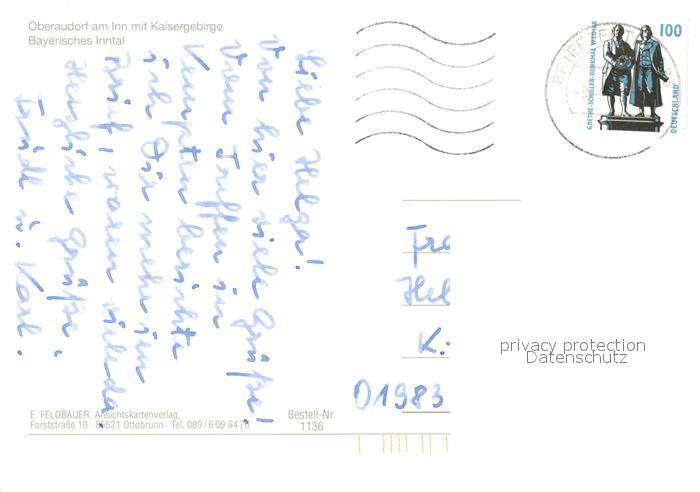 Oberaudorf am Inn mit Kaisergebirge
Bayerisches Inntal
Liebe Helga!
Von hier viele Grüße!
Vom Treffen in
Kempten berichte
ich Dir mehr im
Brief, waren viele da.
Herzliche Grüße
Trudl u. Karl.
E. FELDBAUER, Ansichtskartenverlag,
Forststraße 10 · 85521 Ottobrunn · Tel. 089/6 09 64 7
Bestell-Nr.
1136
100
GOETHE-SCHILLER-DENKMAL WEIMAR
DEUTSCHLAND
Fra
Hel
K.
01983
privacy protection
Datenschutz